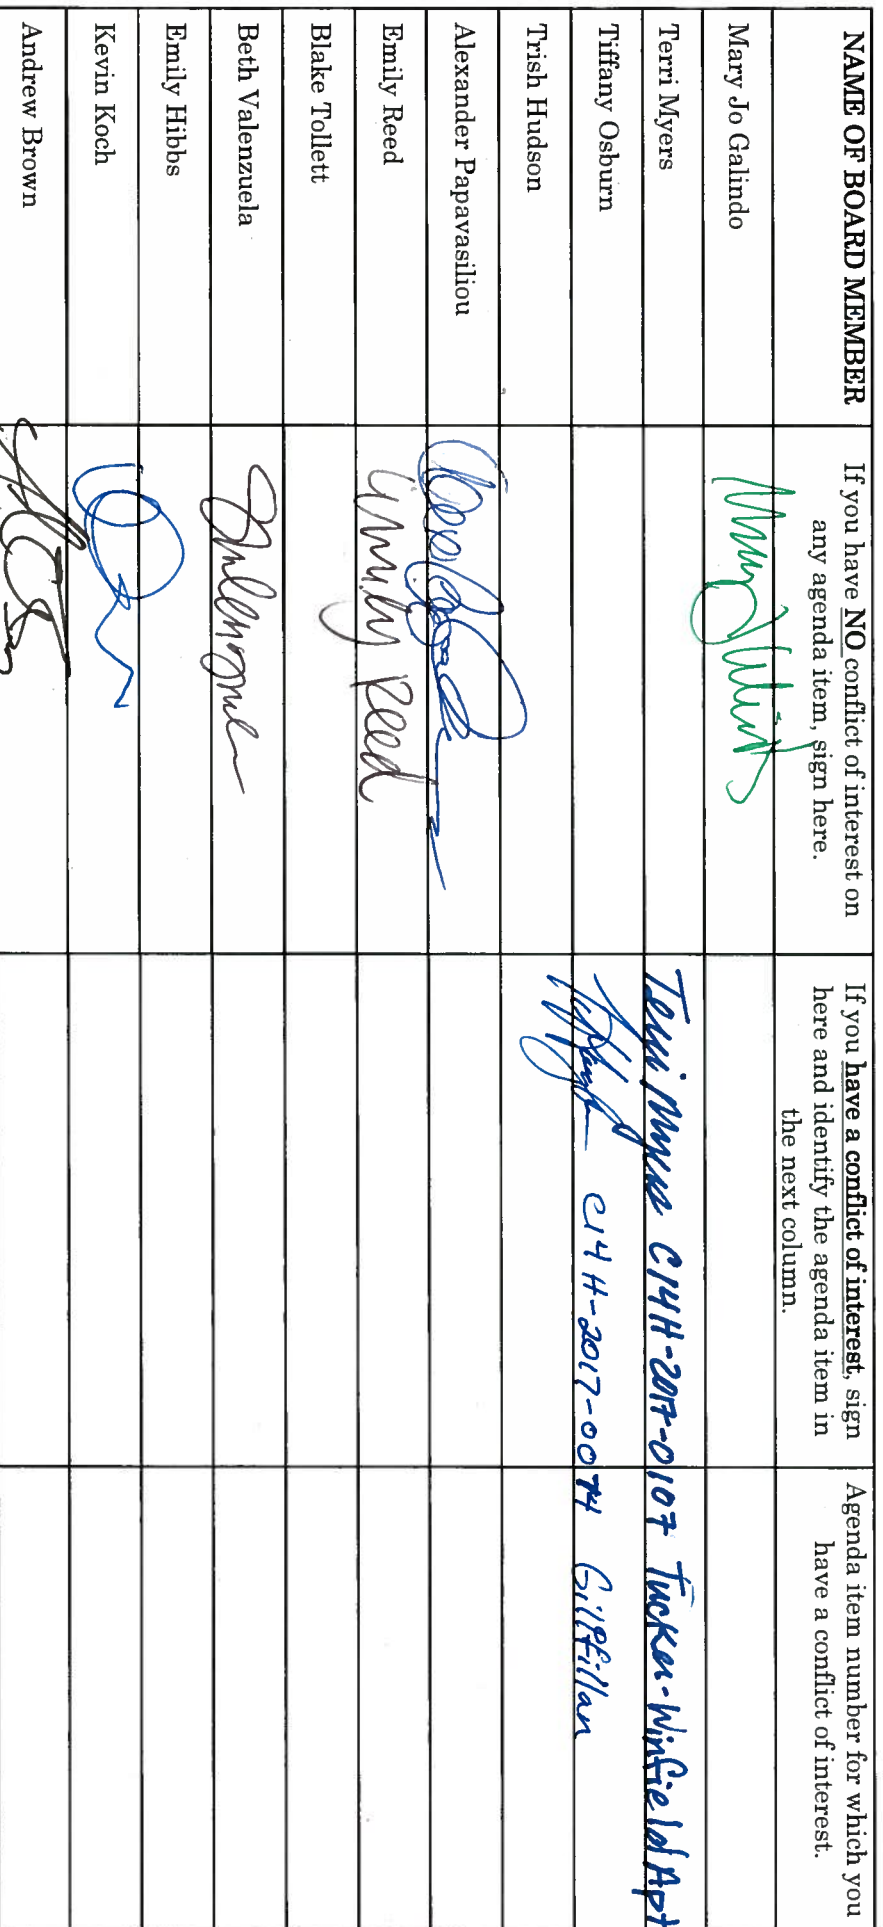 NAME OF BOARD MEMBER
If you have NO conflict of interest on
any agenda item, sign here.
If you have a conflict of interest, sign
here and identify the agenda item in
the next column.
Agenda item number for which you
have a conflict of interest.
Mary Jo Galindo
Terri Myers
Terri Myers C14H-2017-0107 Tucker-Winfield Apt
Tiffany Osburn
C14H-2017-0074 Gillfillan
Trish Hudson
Alexander Papavasiliou
Emily Reed
Emily Reed
Blake Tollett
Beth Valenzuela
Emily Hibbs
Kevin Koch
Andrew Brown